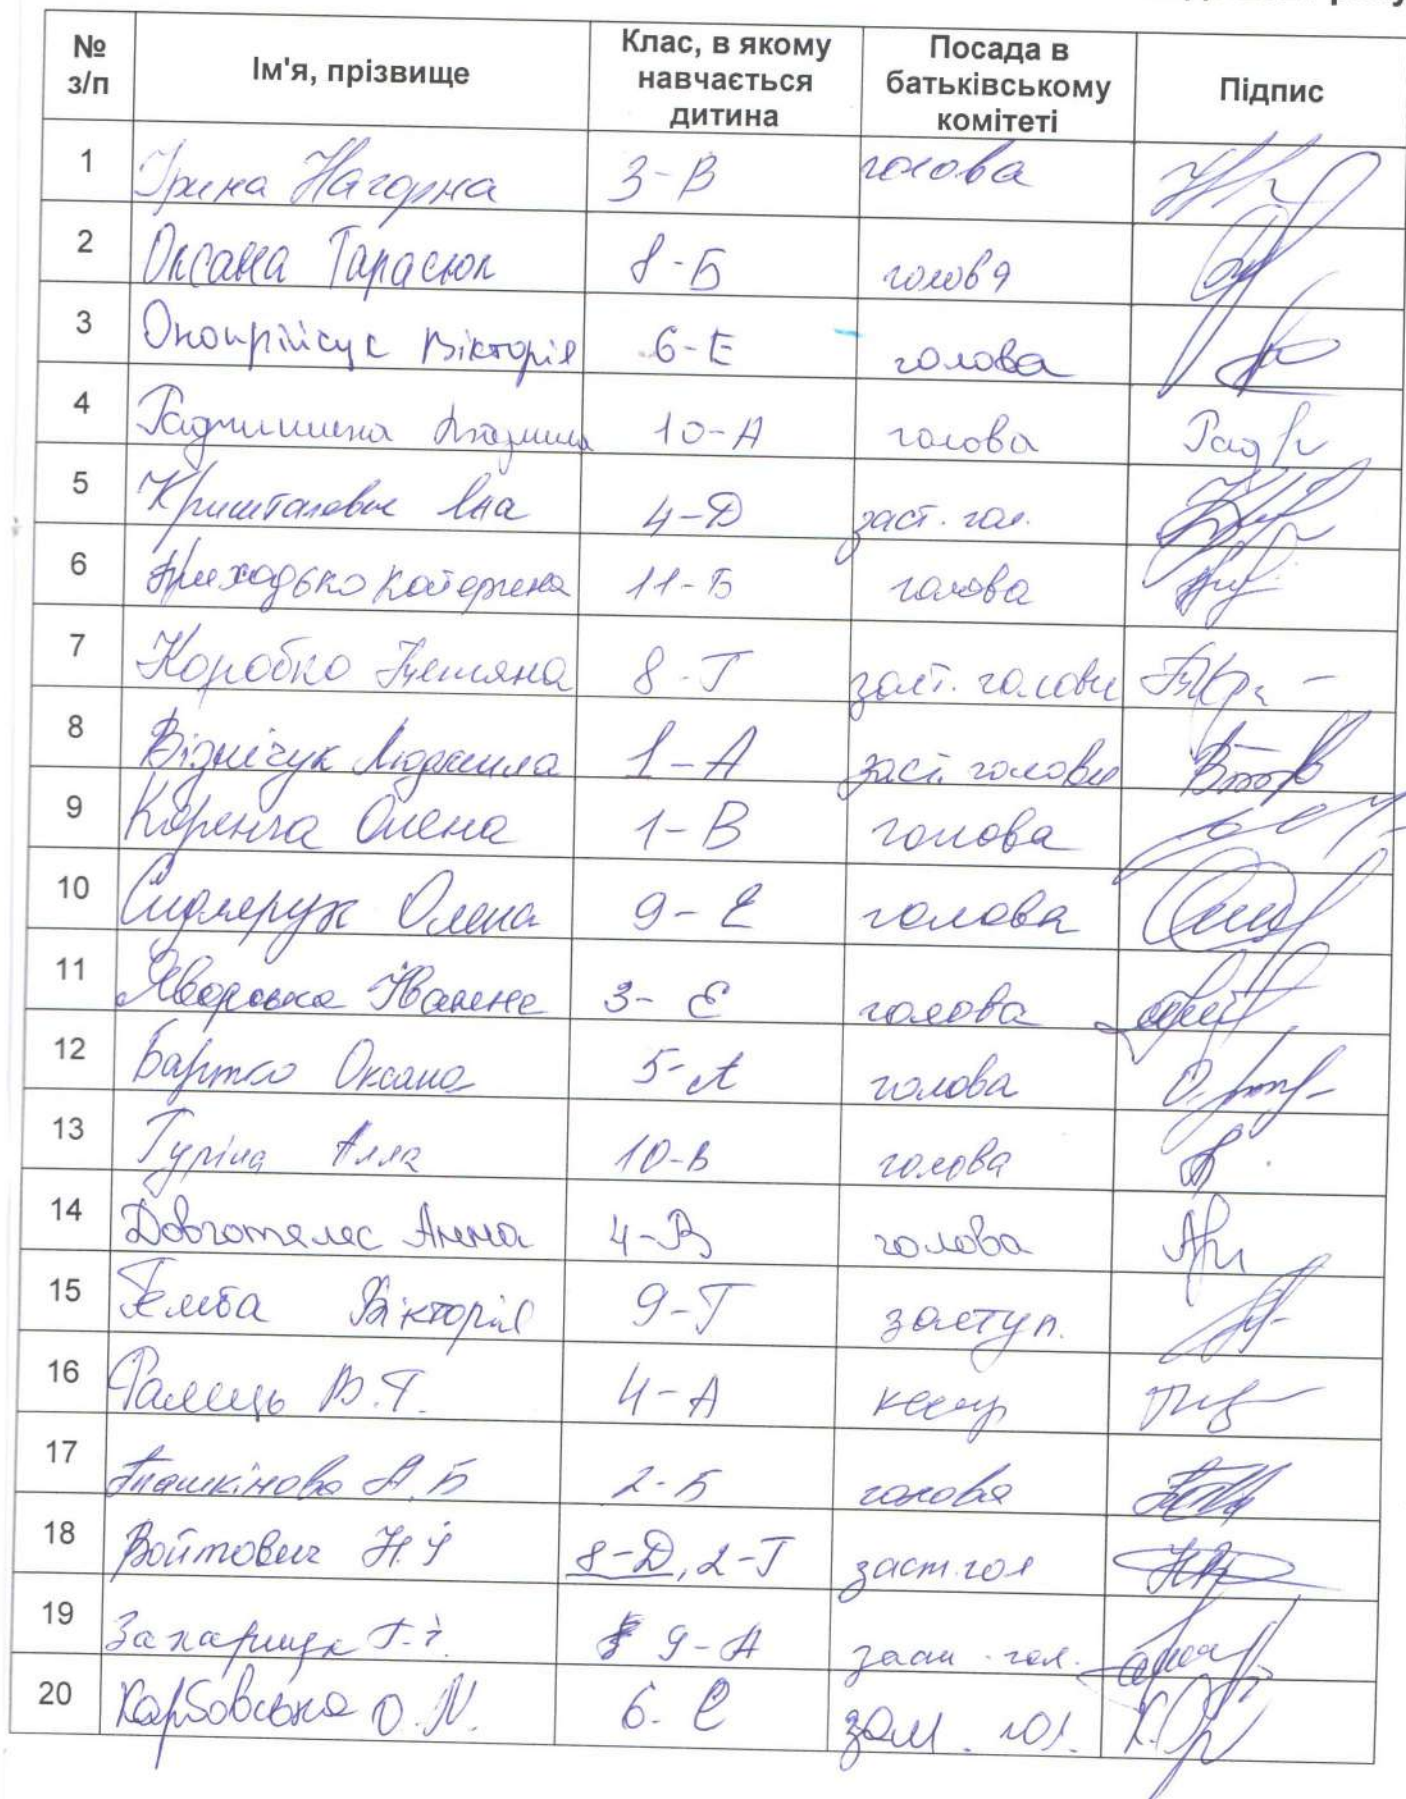 № з/п Ім'я, прізвище Клас, в якому навчається дитина Посада в батьківському комітеті Підпис
1 Ірина Нагорна 3-В голова
2 Оксана Тарасюк 8-Б голова
3 Вікторія 6-Е голова
4 10-А голова
5 4-Д заст. гол.
6 Приходько Катерина 11-Б голова
7 Коробко Тетяна 8-Г заст. голови
8 Візнічук Людмила 1-А заст. голови
9 Олена 1-В голова
10 Олена 9-Е голова
11 Яворська Іванна 3-Е голова
12 Бартко Оксана 5-А голова
13 Гуріна Алла 10-В голова
14 Довготелес Анна 4-В голова
15 Гемба Вікторія 9-Г заступ.
16 4-А
17 Пташкінова А.Б 2-Б голова
18 Войтович Н.І 8-Д, 2-Г заст.гол
19 Захарчук Т.І. 9-А заст. гол.
20 Карбовська О.М. 6-Є зам. гол.